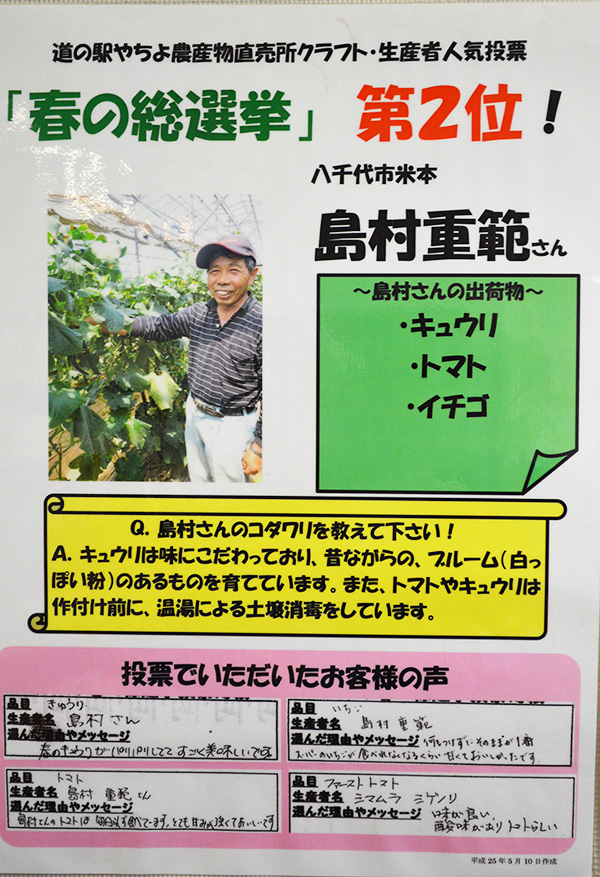 道の駅やちよ農産物直売所クラフト・生産者人気投票
「春の総選挙」 第2位!
八千代市米本
島村重範さん
～島村さんの出荷物～
・キュウリ
・トマト
・イチゴ
Q. 島村さんのコダワリを教えて下さい!
A. キュウリは味にこだわっており、昔ながらの、ブルーム(白っ
ぽい粉)のあるものを育てています。また、トマトやキュウリは
作付け前に、温湯による土壌消毒をしています。
投票でいただいたお客様の声
品目 きゅうり
生産者名 島村さん
選んだ理由やメッセージ
春のきゅうりがパリパリしててすごく美味しいです
品目 いちご
生産者名 島村重範
選んだ理由やメッセージ 何もつけずにそのままが1番
スーパーのいちごが食べれなくなるくらい甘くておいしかったです
品目 トマト
生産者名 島村 重範さん
選んだ理由やメッセージ
島村さんのトマトは毎日必ず食べてます。とても甘みが強くておいしいです
品目 ファーストトマト
生産者名 シマムラ シゲノリ
選んだ理由やメッセージ 味が良い
酸味がありトマトらしい
平成25年5月10日作成